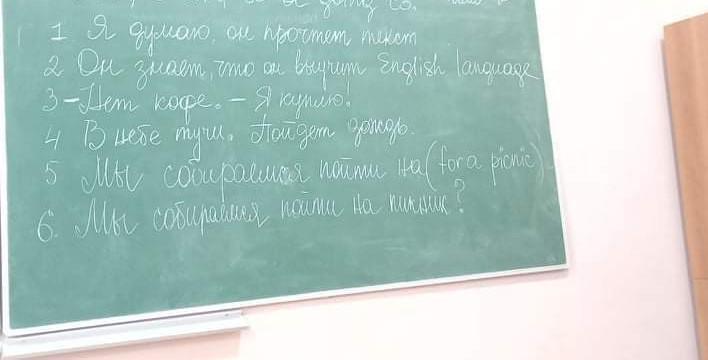 1 Я думаю, он прочтет текст
2 Он знает, что он выучит English language
3 - Нет кофе. - Я куплю!
4 В небе тучи. Пойдет дождь.
5 Мы собираемся пойти на (for a picnic)
6. Мы собираемся пойти на пикник?